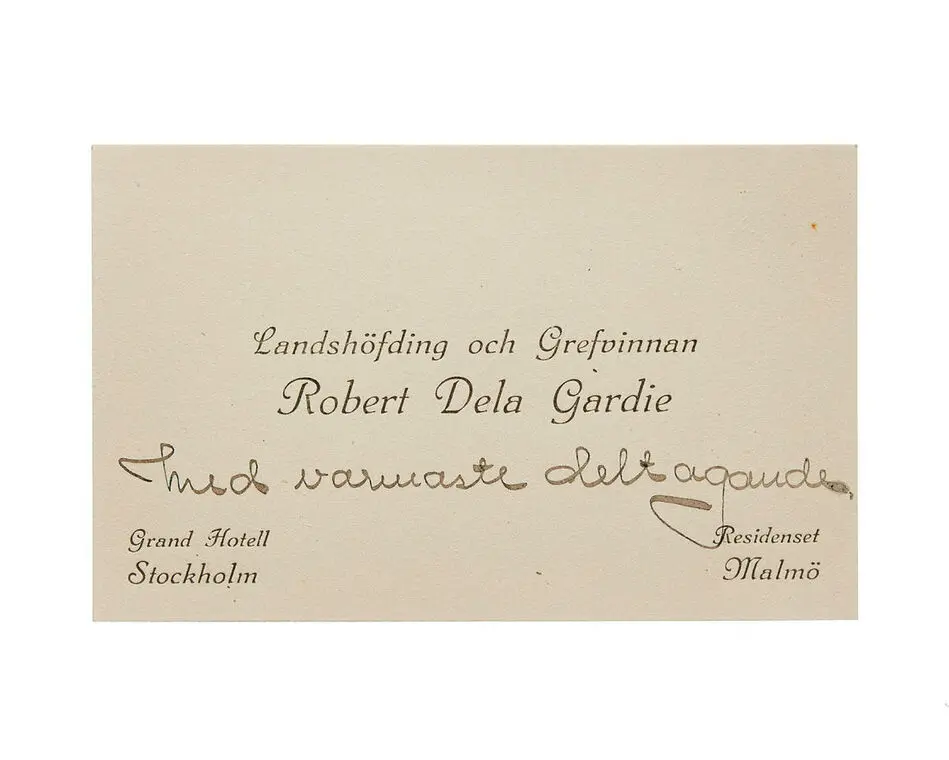 Landshöfding och Grefvinnan
Robert Dela Gardie
Med varmaste deltagande.
Grand Hotell
Stockholm
Residenset
Malmö